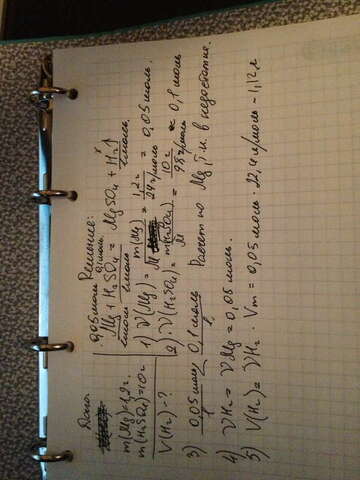 Дано:
m(Mg)=1,2г.
m(H₂SO₄)=10г
V(H₂)-?
Решение:
0,05моль 0,1моль x
Mg + H₂SO₄ = MgSO₄ + H₂↑
1моль 1моль 1моль.
1) ν(Mg) = m(Mg)/M = 1,2г/24г/моль = 0,05моль.
2) ν(H₂SO₄) = m(H₂SO₄)/M = 10г/98г/моль ≈ 0,1моль
3) 0,05моль/1 < 0,1моль/1 Расчет по Mg, т.к. в недостатке.
4) νH₂ = νMg = 0,05моль.
5) V(H₂) = νH₂ · Vm = 0,05моль · 22,4л/моль = 1,12л